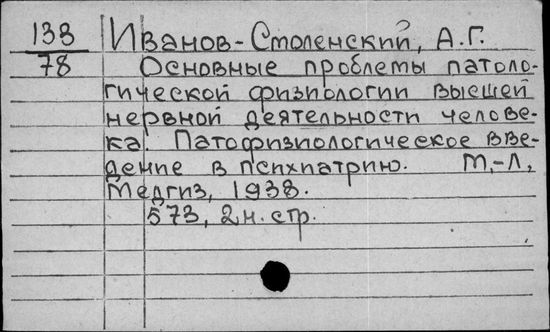 138 Иванов-Смоленский, А.Г.
78 Основные проблемы патоло-
гической физиологии высшей
нервной деятельности челове-
ка. Патофизиологическое вве-
дение в психиатрию. М.-Л.,
Медгиз, 1938.
573, 2н. стр.